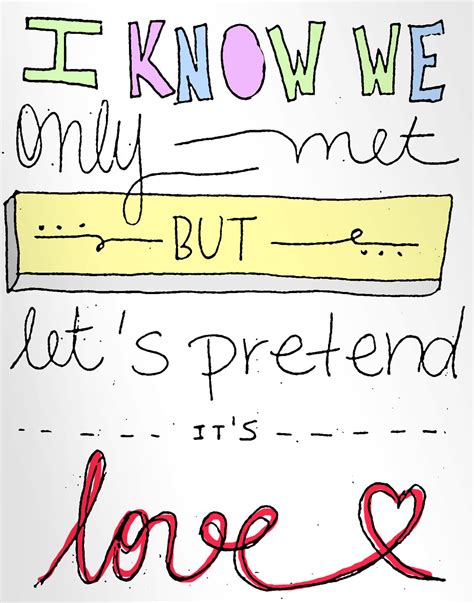 I KNOW WE
only met
BUT
let's pretend
IT'S
love